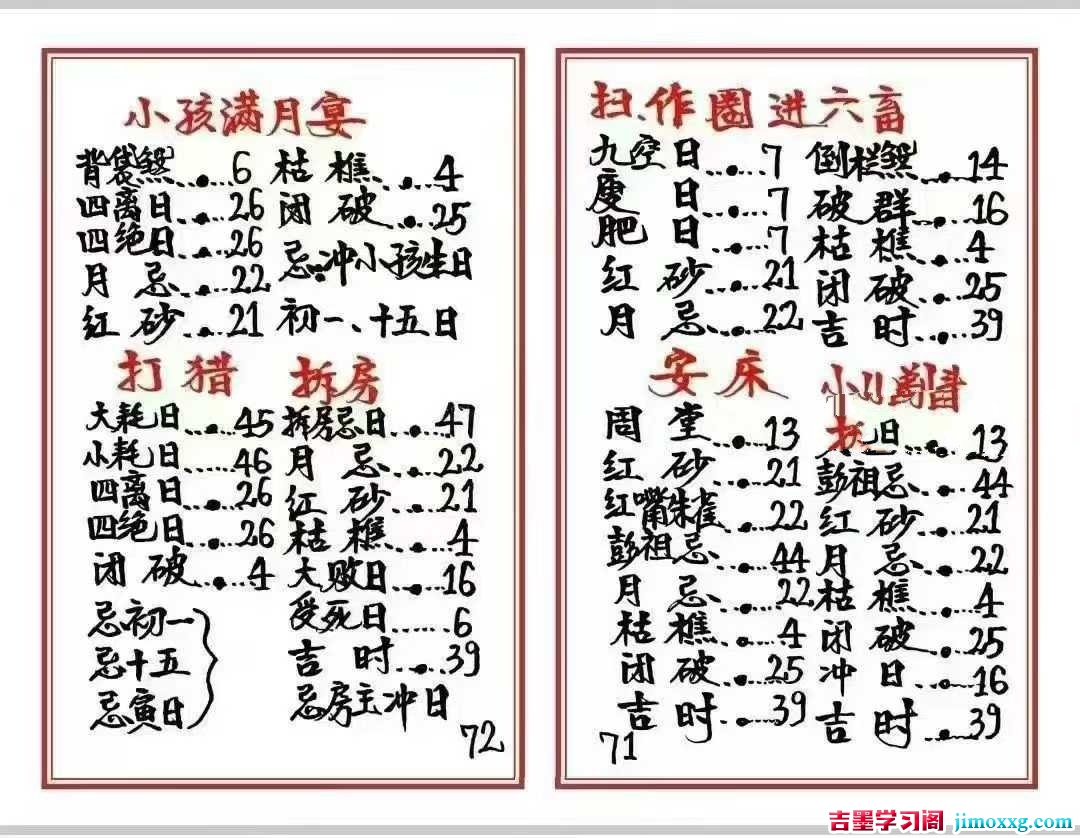 小孩满月宴
背袋煞......6
四离日......26
四绝日......26
月忌......22
红砂......21
枯樵......4
闭破......25
忌:冲小孩生日
初一、十五日
打猎
大耗日......45
小耗日......46
四离日......26
四绝日......26
闭破......4
忌初一
忌十五
忌寅日
拆房
拆房忌日......47
月忌......22
红砂......21
枯樵......4
大败日......16
受死日......6
吉时......39
忌房主冲日
72
扫、作圈进六畜
九空日......7
廋日......7
肥日......7
红砂......21
月忌......22
倒栏煞......14
破群......16
枯樵......4
闭破......25
吉时......39
安床
周堂......13
红砂......21
红嘴朱雀......22
彭祖忌......44
月忌......22
枯樵......4
闭破......25
吉时......39
日......13
彭祖忌......44
红砂......21
月忌......22
枯樵......4
闭破......25
冲日......16
吉时......39
71
吉墨学习阁 jimoxxg.com